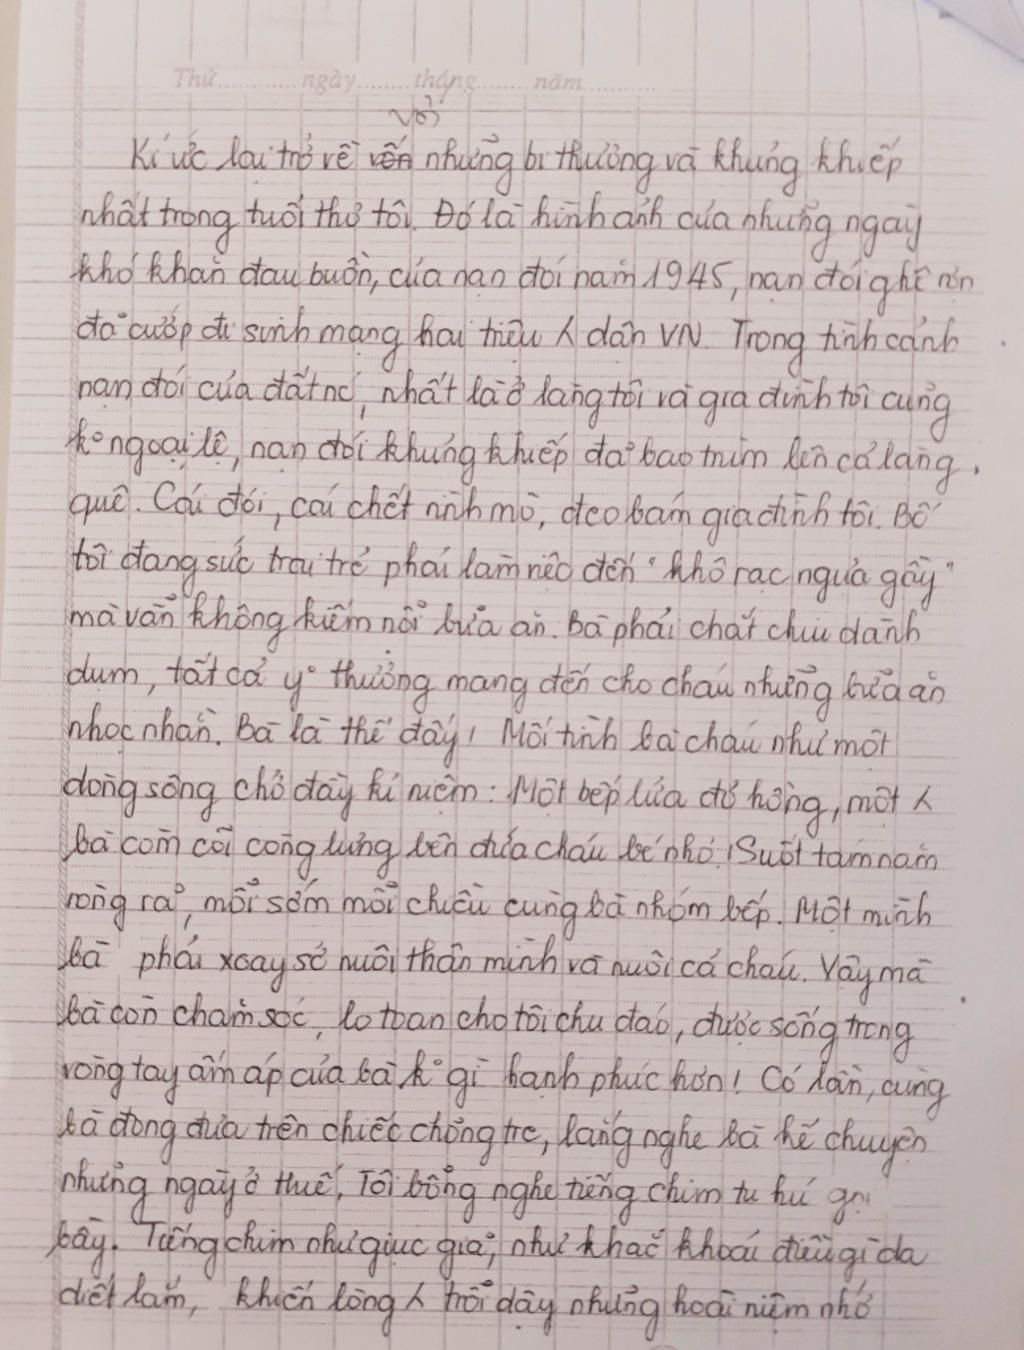 Thứ ............ ngày ........ tháng ........ năm ............
với
Kí ức lại trở về vốn những bi thương và khủng khiếp
nhất trong tuổi thơ tôi. Đó là hình ảnh của những ngày
khó khăn đau buồn, của nạn đói năm 1945, nạn đói ghê rợn
đã cướp đi sinh mạng hai triệu ⅄ dân VN. Trong tình cảnh
nạn đói của đất nc', nhất là ở làng tôi và gia đình tôi cũng
k° ngoại lệ, nạn đói khủng khiếp đã bao trùm lên cả làng
quê. Cái đói, cái chết rình mò, đeo bám gia đình tôi. Bố
tôi đang sức trai trẻ phải làm việc đến "khô rạc ngựa gầy"
mà vẫn không kiếm nổi bữa ăn. Bà phải chắt chiu dành
dụm, tất cả y° thương mang đến cho cháu những bữa ăn
nhọc nhằn. Bà là thế đấy! Mối tình bà cháu như một
dòng sông chở đầy kỉ niệm: Một bếp lửa đỏ hồng, một ⅄
bà còm cõi còng lưng bên đứa cháu bé nhỏ! Suốt tám năm
ròng rã, mỗi sớm mỗi chiều cùng bà nhóm bếp. Một mình
bà phải xoay sở nuôi thân mình và nuôi cả cháu. Vậy mà
bà còn chăm sóc, lo toan cho tôi chu đáo, được sống trong
vòng tay ấm áp của bà k° gì hạnh phúc hơn! Có lần, cùng
bà đong đưa trên chiếc chõng tre, lắng nghe bà kể chuyện
những ngày ở Huế, Tôi bỗng nghe tiếng chim tu hú gọi
bầy. Tiếng chim như giục giã, như khắc khoải điều gì da
diết lắm, khiến lòng ⅄ trỗi dậy những hoài niệm nhớ